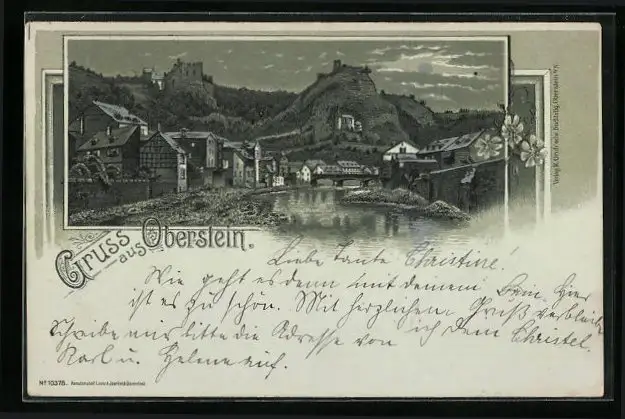 Gruss aus Oberstein.
Liebe Tante Christine!
Wie geht es denn mit deinem Bein. Hier
ist es zu schön. Mit herzlichem Gruß verbleibe
ich dein Christel.
Schreibe mir bitte die Adresse von
Karl u. Helene auf.
No 10378.